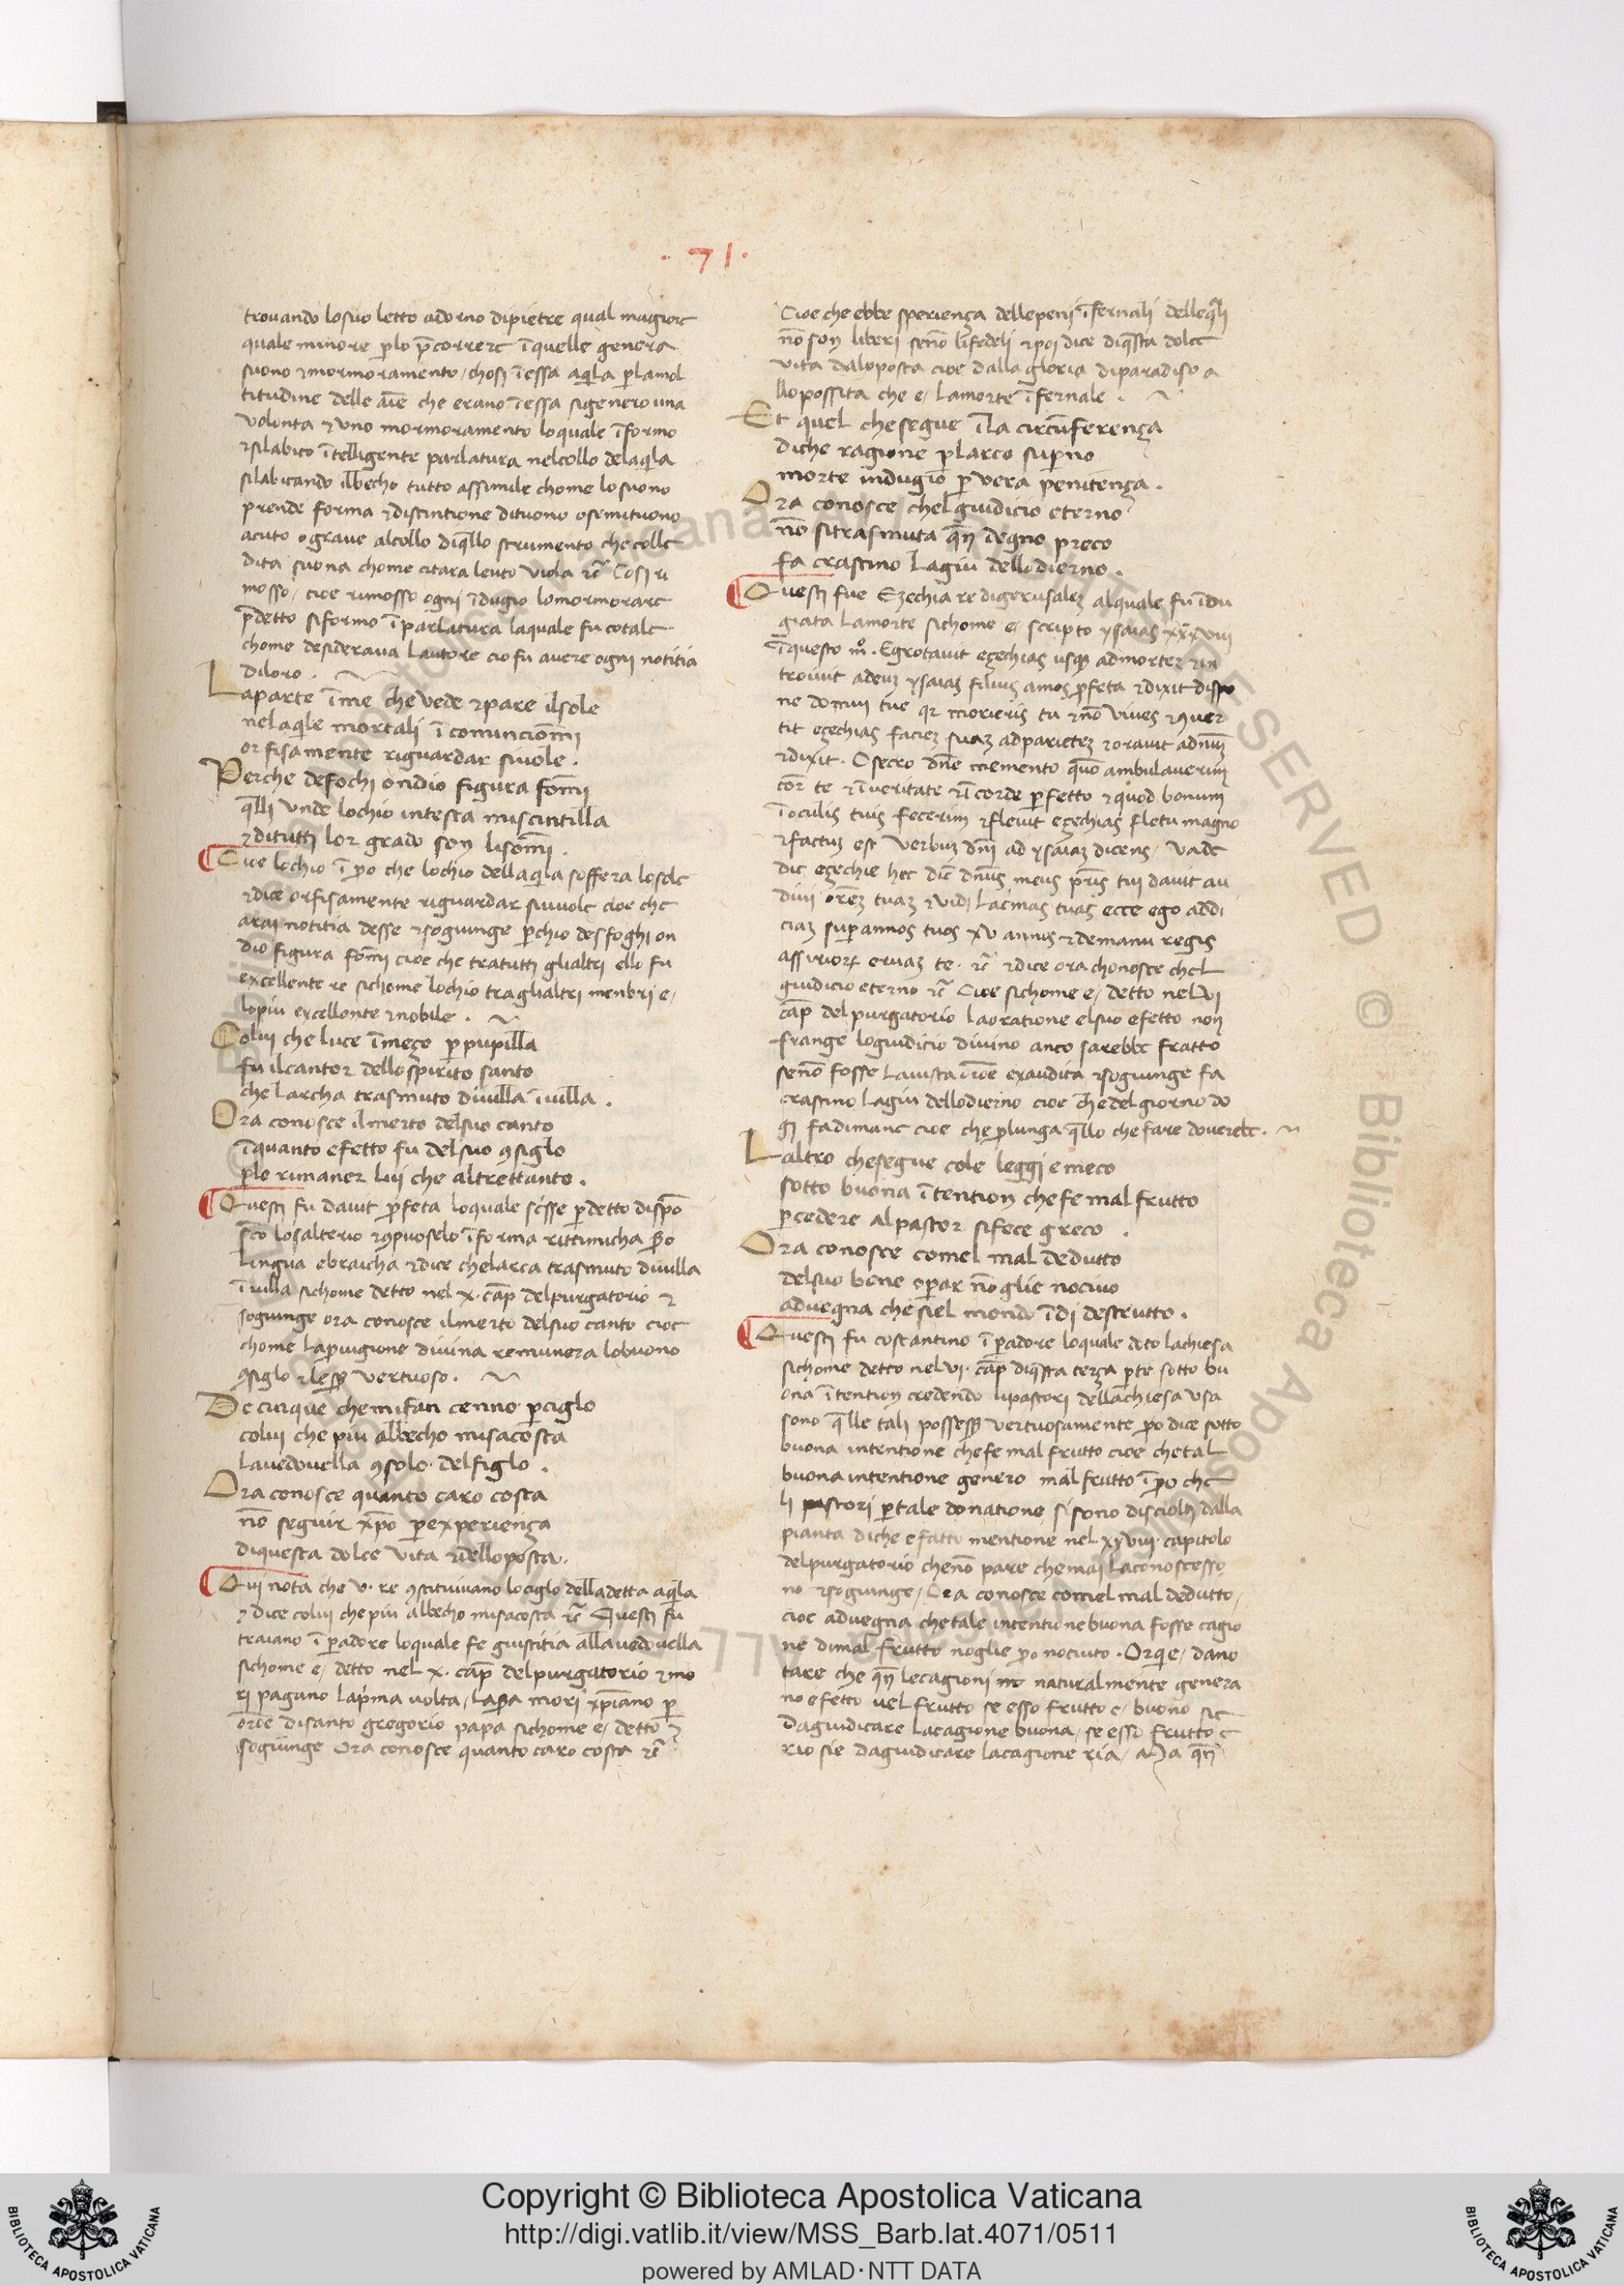 · 71 ·
trouando losuo letto adorno dipietre qual magiore
quale minore plo p̄correre ī quelle genera
suono ⁊mormoramento / chosi ī essa aq̄la p lamol
titudine delle aīe che erano ī essa sigenero una
volonta ⁊ uno mormoramento loquale ī formo
⁊silabico ī telligente parlatura nelcollo delaq̄la
silabicando ilbecho tutto assimile chome losuono
prende forma ⁊distintione dituono osemituono
acuto ograue alcollo diq̄llo strumento che colle
dita suona chome citara leuto viola ⁊c̄ Cosi ri
mosso / cioe rimosso ogni ī dugio lomormorare
p̄detto siformo ī parlatura laquale fu cotale
chome desideraua lautore cio fu auere ogni notitia
diloro .
Laparte ī me che vede ⁊pare ilsole
nelaq̄le mortali ī comincio m̄i
or fisamente riguardar siuole .
Perche defochi ondio figura fom̄i
q̄lli unde lochio intesta miscintilla
⁊ditutti lor grado son lisom̄i .
Cioe lochio ī po che lochio dellaq̄la soffera losole
⁊dice orfisamente riguardar siuuole cioe che
arai notitia desse ⁊sogiunge pchio desfoghi on
dio figura fom̄i cioe che tratutti glialtri ello fu
excellente re sichome lochio traglialtri menbri e /
lopiu excellente ⁊nobile .
Colui che luce ī meço p pupilla
fu ilcantor dello spirito santo
che larcha trasmuto diuilla ī uilla .
Ora conosce ilmerto delsuo canto
ī quanto efetto fu delsuo ꝯsiglo
plo rimuner lui che altrettanto .
Questi fu dauit p̄feta loquale scisse p detto dispo
sc̄o losalterio ⁊ꝯpuoselo ī forma rittimicha
lingua ebraicha ⁊dice chelarca trasmuto diuilla
ī uilla sichome detto nel x. cap̄ delpurgatorio ⁊
sogiunge ora conosce ilmerto delsuo canto cioe
chome lapuigione diuina remunera lobuono
ꝯsiglo vertuoso .
De cinque chemifan cenno p ciglo
colui che piu albecho misacosta
lauedouella ꝯsolo delfiglo .
Ora conosce quanto caro costa
nō seguir xp̄o p experiença
diquesta dolce vita ⁊dellopposta .
Qui nota che v. re ꝯstituiuano lociglo delladetta aq̄la
⁊dice colui che piu albecho misacosta ⁊c̄ Questi fu
traiano ī padore loquale fe giustitia allauedouella
sichome e / detto nel x. cap̄ delpurgatorio ⁊mo
ri pagano lap̄ma uolta / mori xp̄iano p
or̄oe disanto gregorio papa sichome e / detto ⁊
sogiunge Ora conosce quanto caro costa ⁊c̄
Cioe che ebbe sperienca dellepeni ī fernali delleq̄li
nō son liberi senō lifedeli ⁊poi dice diq̄sta dolce
vita daloposta cioe dalla gloria diparadiso a
llopossita che e / lamorte ī fernale .
Et quel chesegue ī la circūferença
diche ragione plarco sup̄no
morte indugio p vera penitença .
Ora conosce chel giudicio eterno
nō sitrasmuta q̄n degno preco
fa crastino lagiu dellodierno .
Questi fue Ezechia re digerusalez alquale fu īdu
giata lamorte sichome e / scripto ysaias xxxviii
ī questo mº. Egrotauit eçechias usq̄ admortez ⁊in
trouit adeuz ysaias filius amos p̄feta ⁊dixit dispo
ne domui tue q̄r morieris tu ⁊nō viues ⁊ꝯuer
tit eçechias faciez suaz adparietez ⁊orauit adnūz
⁊dixit . Osecro dn̄e memento quō ambulauerim
cor̄ te ⁊ī ueritate ⁊ī corde pfetto ⁊quod bonum
ī oculis tuis fecerim ⁊fleuit eçechias fletu magno
⁊factuz est verbuz dn̄i ad ysaiaz dicens / vade
dic eçechie hec dic̄ dn̄us meus pr̄is tui dauit au
diui or̄ez tuaz ⁊vidi lac̄mas tuas ecce ego addi
ciaz sup annos tuos xv annis ⁊demanu regis
assiriorꝝ eruaz te . ⁊c̄ ⁊dice ora chonosce chel
giudicio eterno ⁊c̄ Cioe sichome e / detto nel vi
cap̄ del purgatorio laoratione elsuo efetto non
frange logiudicio diuino anco sarebbe fratto
senō fosse lauista or̄oe exaudita ⁊sogiunge fa
crastino lagiu dellodierno cioe che del giorno do
gi fadimane cioe che plunga q̄llo che fare douerebe .
Laltro chesegue cole leggi emeco
sotto buona ī tention chefe mal frutto
p cedere alpastor sifece greco .
Ora conosce comel mal dedutto
delsuo bene opar nōglie nociuo
aduegna che siel mondo ī di destrutto .
Questi fu costantino ī padore loquale doto lachiesa
sichome detto nel vi. cap̄ diq̄sta terça pte sotto bu
ona ī tention credendo lipastori dellachiesa usa
sono q̄lle tali possess̄ vertuosamente po dice sotto
buona intentione chefe mal frutto cioe chetal
buona intentione genero mal frutto ī po che
li pastori p tale donatione sisono disciolti dalla
pianta diche efatto mentione nel xxviii. capitolo
delpurgatorio chenō pare chemai laconoscesso
no ⁊sogiunge / Ora conosce comel mal dedutto /
cioe aduegna chetale intentione buona fosse cagio
ne dimal frutto noglie po nociuto . Orq̄ e / dano
tare che q̄n lecagioni naturalmente genera
no efetto uel frutto se esso frutto e / buono sie
daguidicare lacagione buona / se esso frutto e
rio sie daguidicare lacagione ria / Ma q̄n
Copyright © Biblioteca Apostolica Vaticana
http://digi.vatlib.it/view/MSS_Barb.lat.4071/0511
powered by AMLAD·NTT DATA
BIBLIOTECA APOSTOLICA VATICANA
BIBLIOTECA APOSTOLICA VATICANA